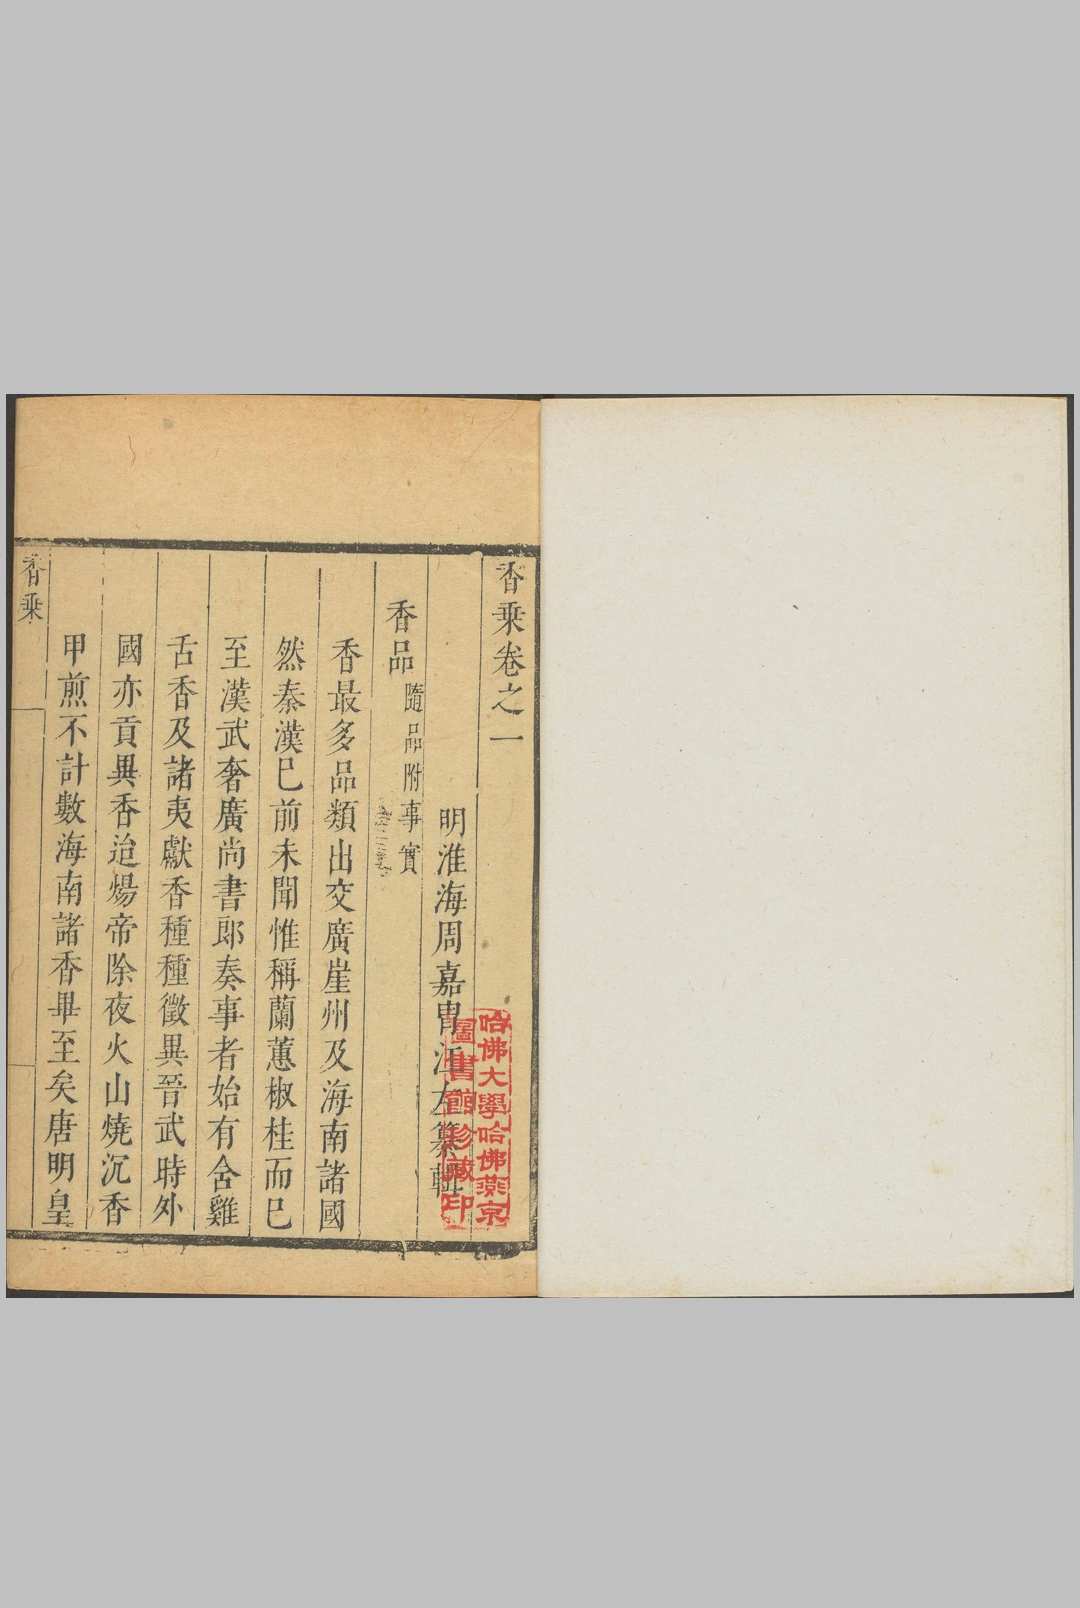 香乗卷之一
明淮海周嘉胄江左纂輯
香品 隨品附事實
香最多品類出交廣崖州及海南諸國
然秦漢巳前未聞惟稱蘭蕙椒桂而巳
至漢武奢廣尚書郎奏事者始有含雞
舌香及諸夷獻香種種徵異晉武時外
國亦貢異香迨煬帝除夜火山燒沉香
甲煎不計數海南諸香畢至矣唐明皇
香乗
哈佛大學哈佛燕京
圖書館珍藏印